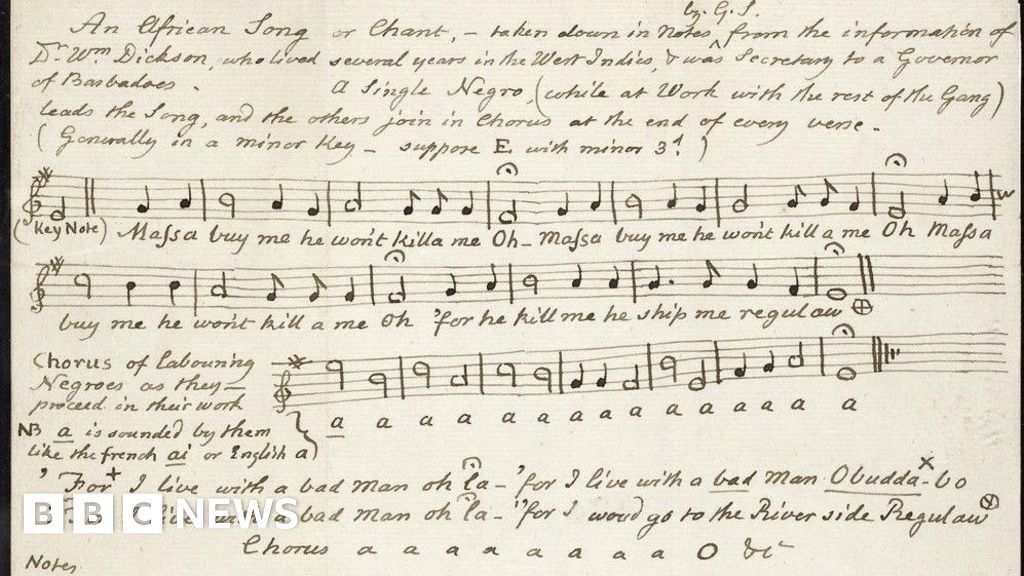 by G.S.
An African Song or Chant, – taken down in Notes ^ from the information of
Dr. Wm. Dickson, who lived several years in the West Indies, & was Secretary to a Governor
of Barbadoes. A Single Negro, (while at Work with the rest of the Gang)
leads the Song, and the others join in Chorus at the end of every verse.
(Generally in a minor Key – suppose E with minor 3d.)
(Key Note) Massa buy me he won't killa me Oh – Massa buy me he won't kill a me Oh Massa
buy me he won't kill a me Oh 'for he kill me he ship me regulaw
Chorus of labouring
Negroes as they –
proceed in their work
a a a a a a a a a a a a a
NB a is sounded by them
like the french ai or English a)
'For+ I live with a bad man oh la – 'for I live with a bad man Obudda-bo
live with a bad man oh la – 'for I woud go to the River side Regulaw
Chorus a a a a a a a a O &c
Notes
BBC NEWS